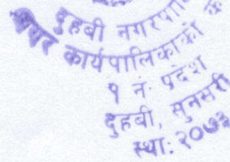 दुहबी नगरपा
कार्यपालिकाको क
१ नं प्रदेश
दुहबी, सुनसरी
स्था: २०७३